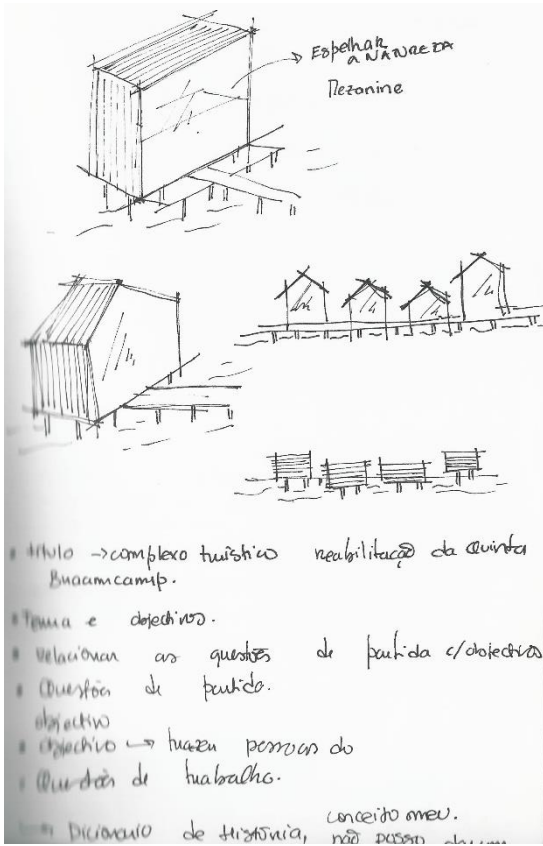 Espelhar
a NATUREZA
Mezanine
título → complexo turístico reabilitação da Quinta
Tema e objectivos.
relacionar as questões de partida c/objectivos
Questões de partida.
objectivo
objectivo → trazer pessoas do
Questões de trabalho.
conceito meu.
Dicionario de História, não posso